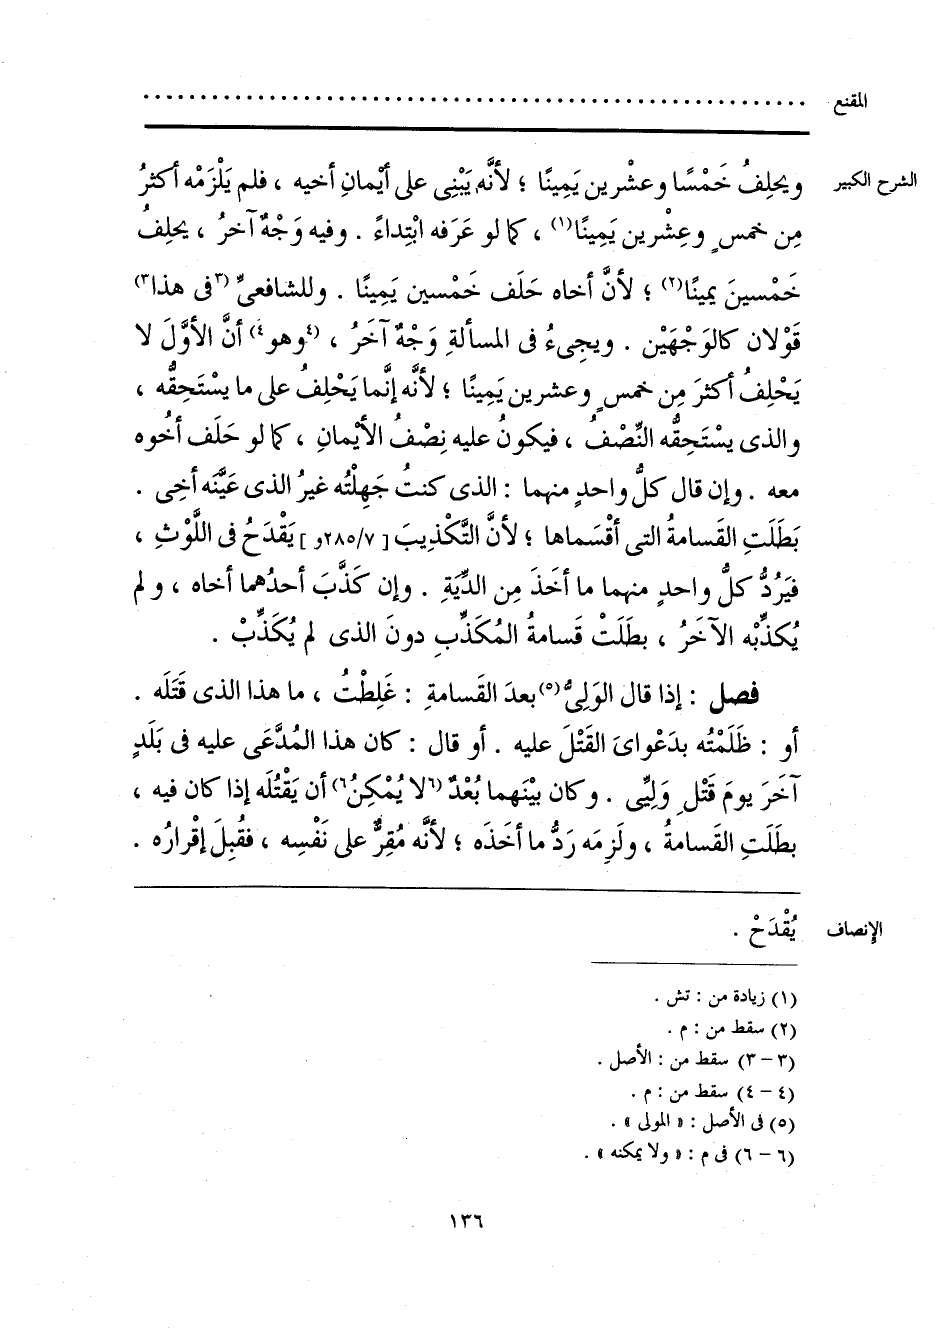 المقنع ........................................................
الشرح الكبير ويحلِفُ خَمْسًا وعشْرين يَمِينًا ؛ لأنَّه يَبْنِى على أيْمانِ أخيه ، فلم يَلْزَمْه أكثرُ
مِن خمسٍ وعِشْرين يَمِينًا(١) ، كما لو عَرَفه ابْتِداءً . وفيه وَجْهٌ آخرُ ، يحلِفُ
خَمْسينَ يمينًا(٢) ؛ لأنَّ أخاه حَلَف خَمْسين يَمِينًا . وللشافعىِّ (٣فى هذا٣)
قَوْلان كالوَجْهَيْن . ويجىءُ فى المسألةِ وَجْهٌ آخَرُ ، (٤وهو٤) أنَّ الأوَّلَ لا
يَحْلِفُ أكثرَ مِن خمسٍ وعشرين يَمِينًا ؛ لأنَّه إنَّما يَحْلِفُ على ما يسْتَحِقُّه ،
والذى يسْتَحِقُّه النِّصْفُ ، فيكونُ عليه نِصْفُ الأيْمانِ ، كما لو حَلَف أخُوه
معه . وإن قال كلُّ واحدٍ منهما : الذى كنتُ جَهِلْتُه غيرُ الذى عَيَّنَه أخِى .
بَطَلَتِ القَسامةُ التى أقْسَماها ؛ لأنَّ التَّكْذِيبَ [ ٢٨٥/٧و ] يَقْدَحُ فى اللَّوْثِ ،
فيَرُدُّ كلُّ واحدٍ منهما ما أخَذَ مِن الدِّيَةِ . وإن كَذَّبَ أحدُهما أخاه ، ولم
يُكذِّبْه الآخَرُ ، بطَلَتْ قَسامةُ المُكَذِّبِ دونَ الذى لم يُكَذِّبْ .
فصل : إذا قال الوَلِىُّ(٥) بعدَ القَسامةِ : غَلِطْتُ ، ما هذا الذى قَتَلَه .
أو : ظَلَمْتُه بدَعْواىَ القَتْلَ عليه . أو قال : كان هذا المُدَّعَى عليه فى بَلَدٍ
آخَرَ يومَ قَتْلِ وَلِيِّى . وكان بيْنَهما بُعْدٌ (٦لا يُمْكِنُ٦) أن يَقْتُلَه إذا كان فيه ،
بطَلَتِ القَسامةُ ، ولَزِمَه رَدُّ ما أخَذَه ؛ لأنَّه مُقِرٌّ على نَفْسِه ، فقُبِلَ إقْرارُه .
الإنصاف يُقْدَحْ .
(١) زيادة من : تش .
(٢) سقط من : م .
(٣ – ٣) سقط من : الأصل .
(٤ – ٤) سقط من : م .
(٥) فى الأصل : « المولى » .
(٦ – ٦) فى م : « ولا يمكنه » .
١٣٦